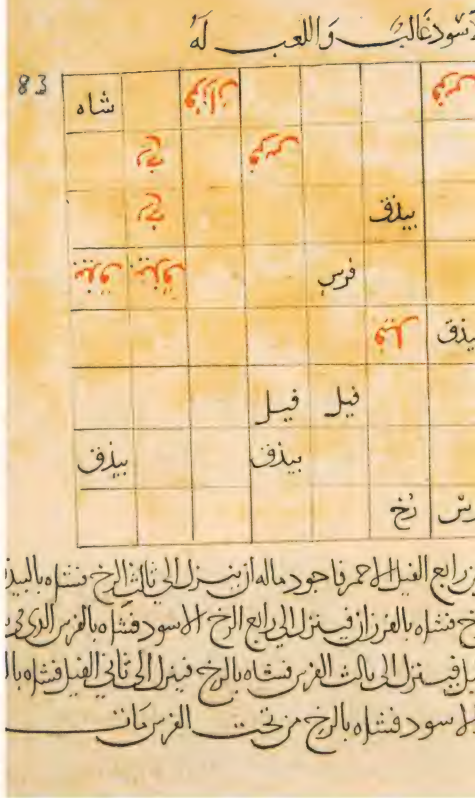 لاسود غالبٌ واللعب لَهُ
83
شاه فرزان فرس
رخ فرس
رخ بيذق
بيذق بيذق فرس
فيل بيذق
فيل فيل
بيذق بيذق
رخ فرس
رابع الفيل الاحمر فاجود ماله ان ينزل الى ثالث الرخ فتشاه بالبيذق
فتشاه بالفرزان فينزل الى رابع الرخ الاسود فتشاه بالفرس الذي
فينزل الى ثالث الفرس فتشاه بالرخ فينزل الى ثاني الفيل فتشاه
الاسود فتشاه بالرخ من تحت الفرس مات